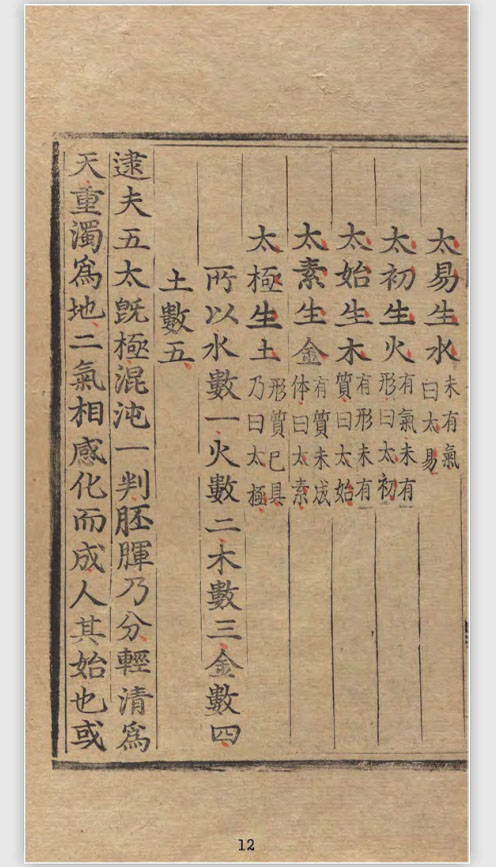 太易生水未有氣曰太易
太初生火有氣未有形曰太初
太始生木有形未有質曰太始
太素生金有質未成体曰太素
太極生土形質已具乃曰太極
所以水數一火數二木數三金數四
土數五
逮夫五太旣極混沌一判胚腪乃分輕清爲
天重濁爲地二氣相感化而成人其始也或
12